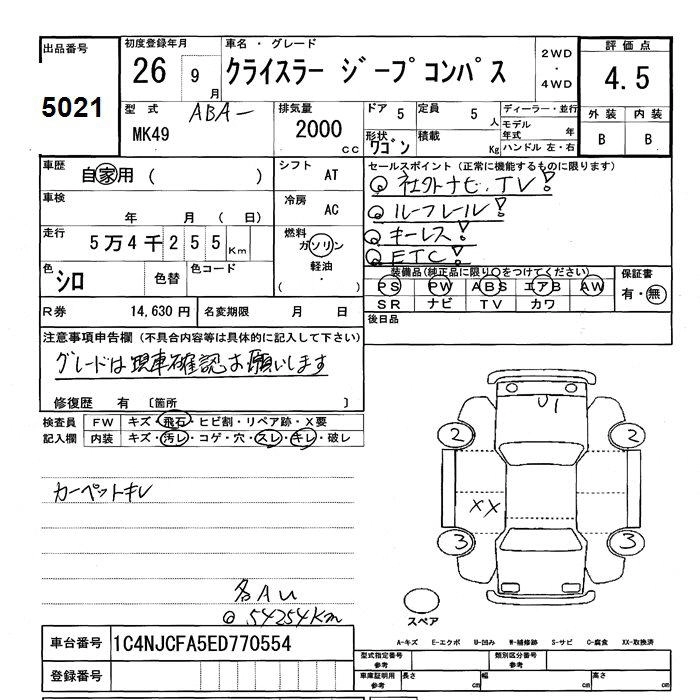 出品番号 初度登録年月 車名・グレード 2WD・4WD 評価点
5021 26 9月 クライスラー ジープコンパス 4.5
型式 ABA- 排気量 ドア 5 定員 5人 ディーラー・並行 外装 内装
MK49 2000cc 形状 ワゴン 積載 Kg モデル年式 年 ハンドル 左・右 B B
車歴 自家用 ( ) シフト AT セールスポイント (正常に機能するものに限ります)
社外ナビ、TV!
車検 年 月 ( 日) 冷房 AC ルーフレール!
走行 5万4千255Km 燃料 ガソリン 軽油・( ) キーレス!
ETC!
色 シロ 色替 色コード 装備品(純正品に限り○をつけてください) 保証書
PS PW ABS エアB AW 有・無
SR ナビ TV カワ
R券 14,630円 名変期限 月 日 後日品
注意事項申告欄 (不具合内容等は具体的に記入して下さい)
グレードは現車確認お願いします
修復歴 有 〔箇所 〕
検査員 FW キズ・飛石・ヒビ割・リペア跡・X要
記入欄 内装 キズ・汚レ・コゲ・穴・スレ・キレ・破レ
U1
2 2
カーペットキレ
XX
3 3
各AU
54254Km
スペア
A-キズ E-エクボ U-凹み W-補修跡 S-サビ C-腐食 XX-取換済
車台番号 1C4NJCFA5ED770554 型式指定番号 参考 類別区分番号 参考
登録番号 車庫証明用 参考 長さ cm 幅 cm 高さ cm